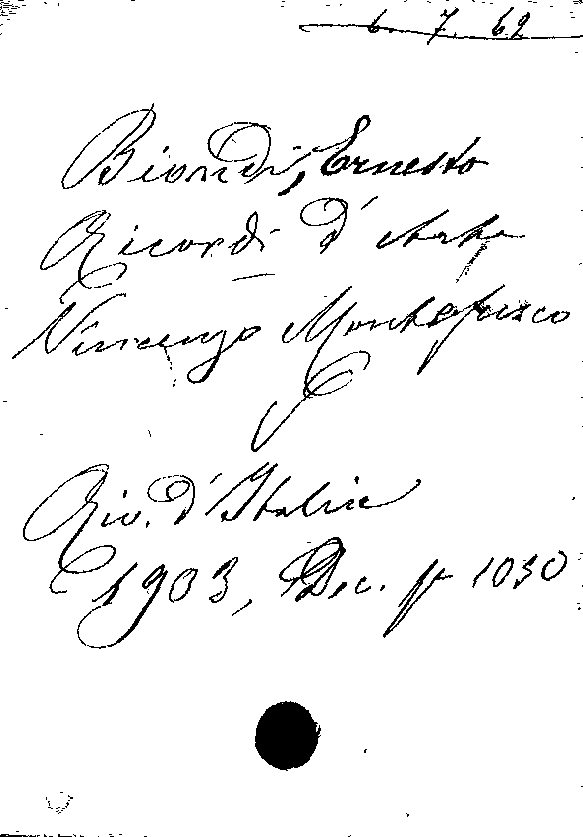 6. 7. 62
Biondi, Ernesto
Ricordi d'arte
Vincenzo Montefusco
Riv. d'Italia
1903, Dec. p 1030